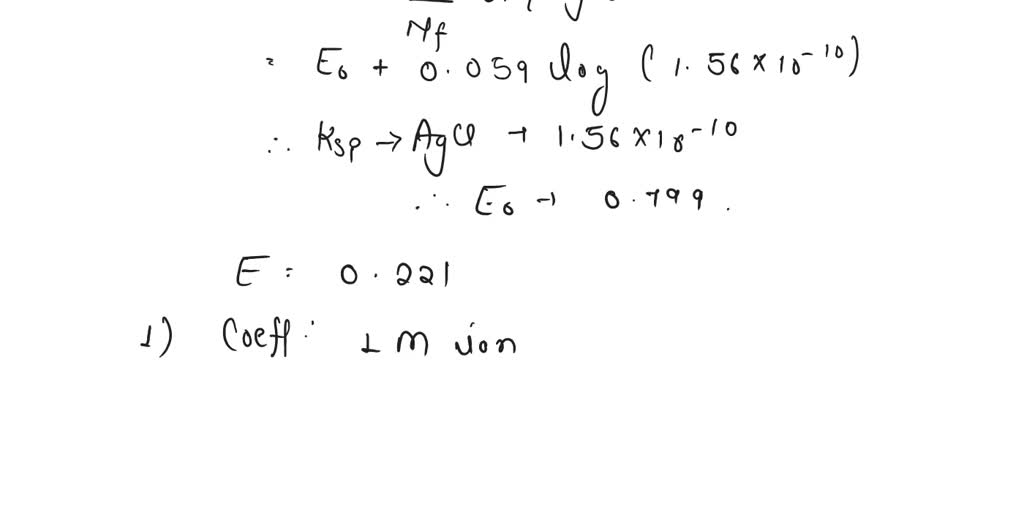 Nf
= E₀ + 0.059 log (1.56 × 10⁻¹⁰)
∴ Ksp → AgCl → 1.56 × 10⁻¹⁰
∴ E₀ → 0.799.
E = 0.221
1) Coeff: 1 M ion